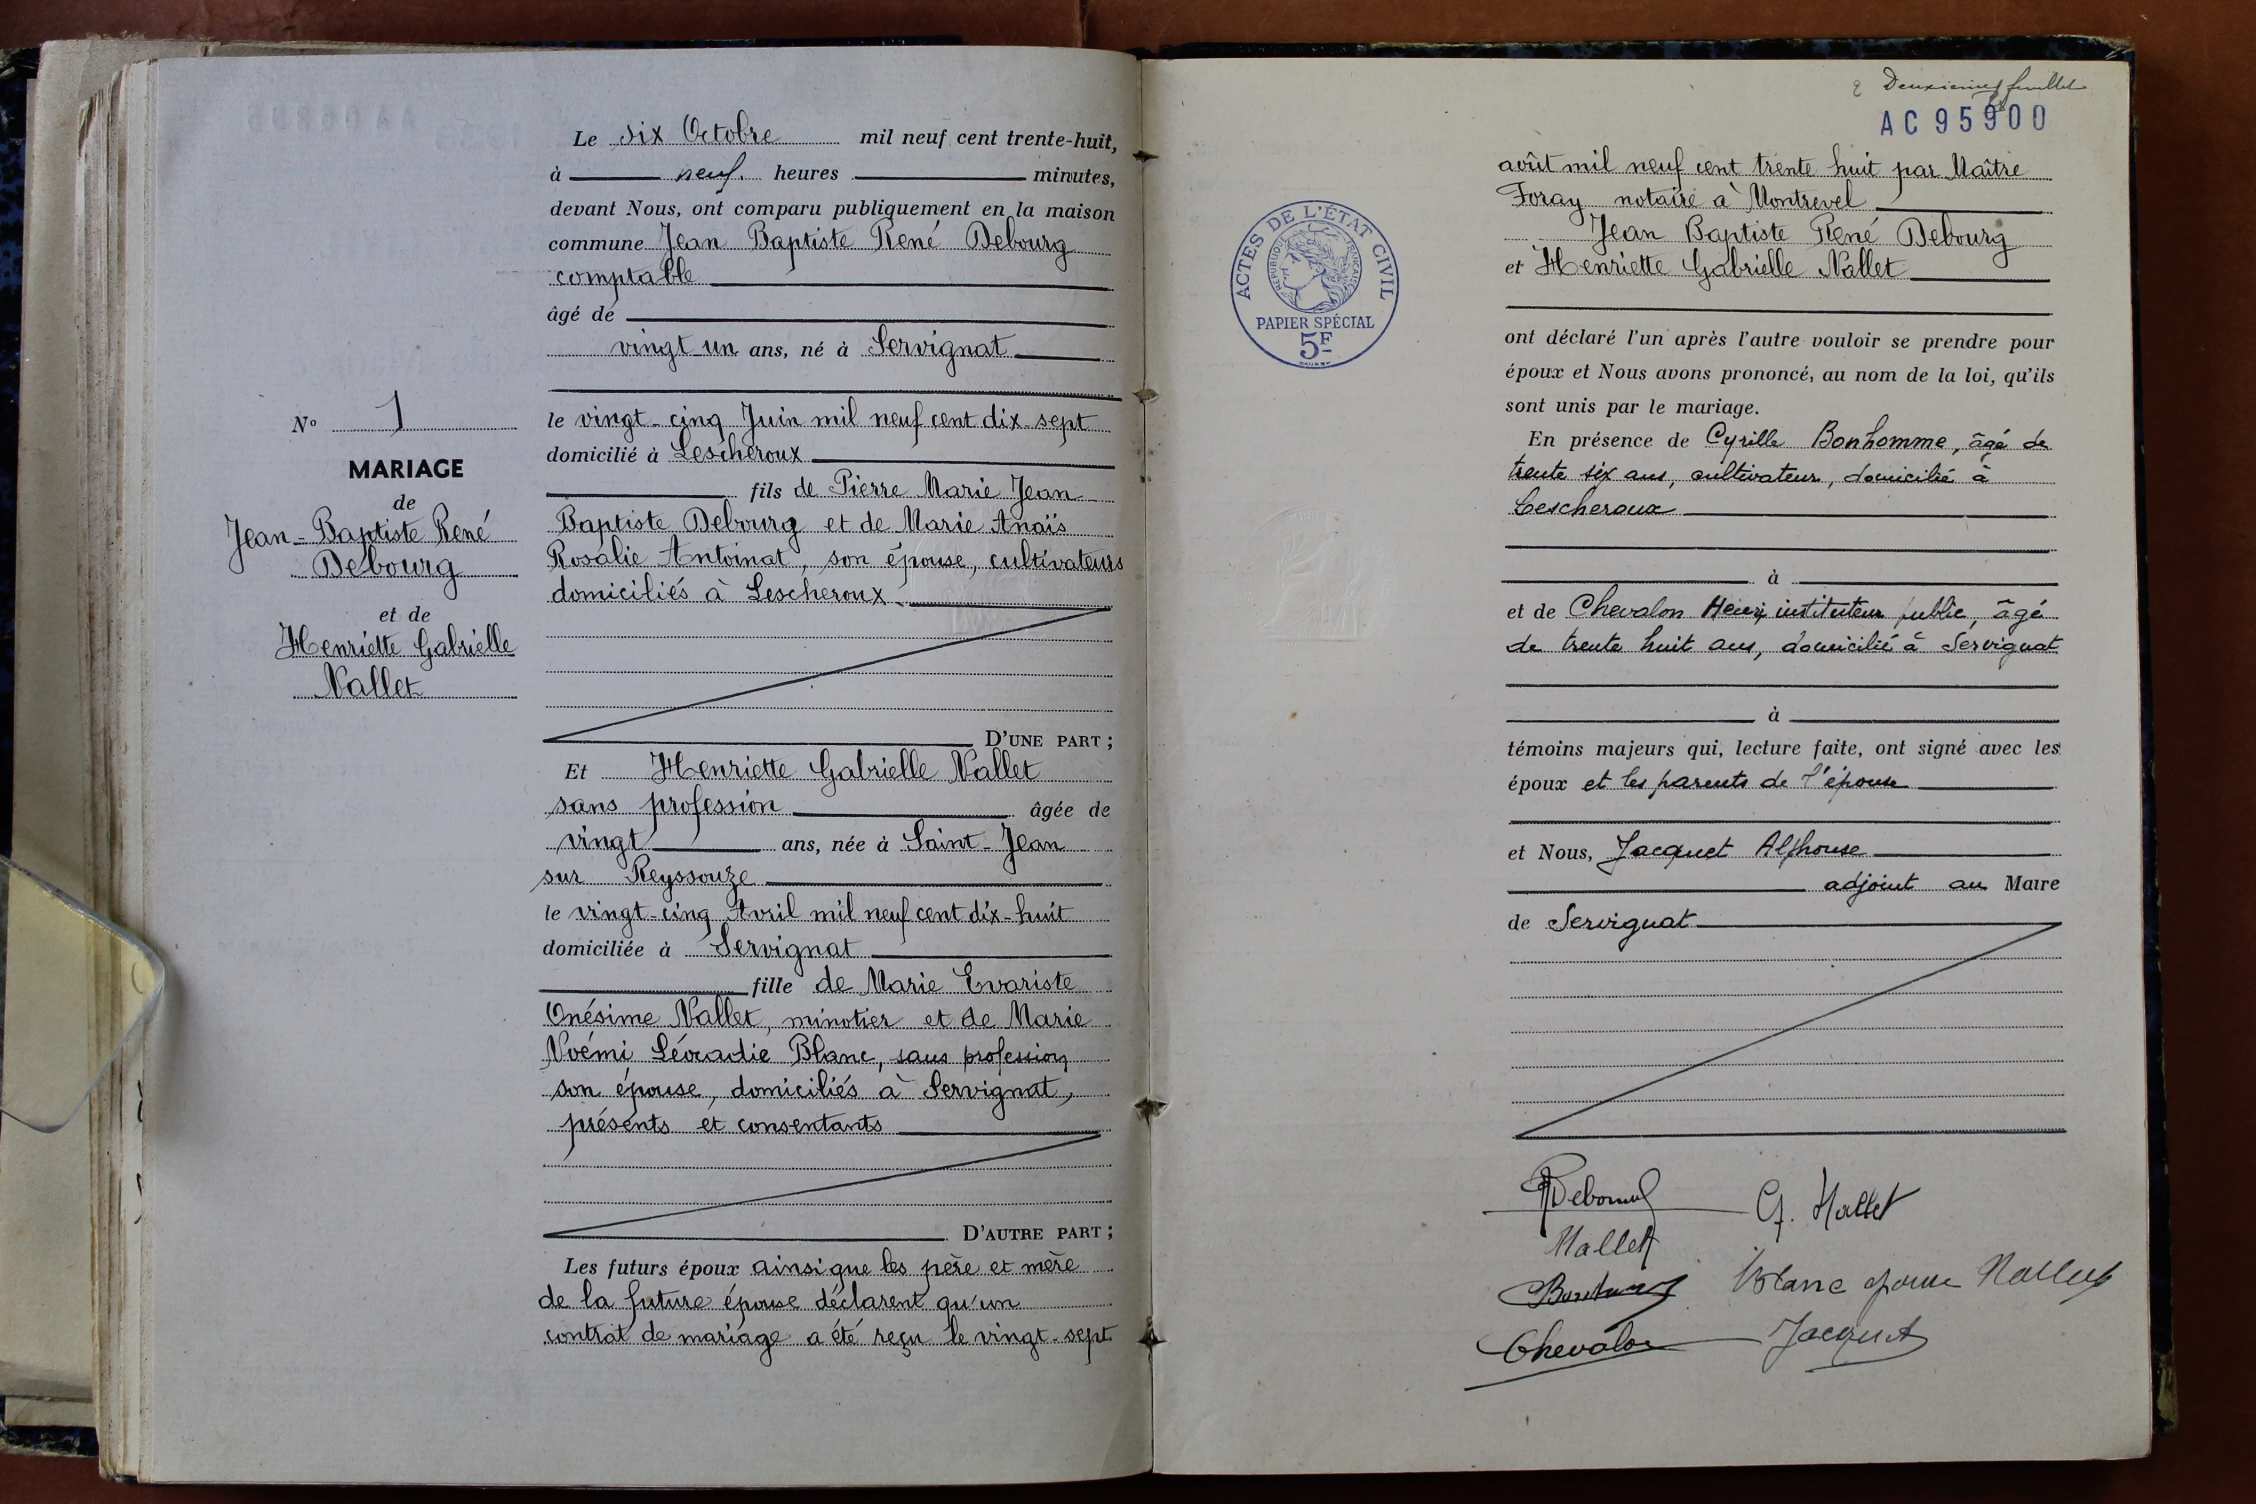 Le six Octobre mil neuf cent trente-huit,
à neuf heures minutes,
devant Nous, ont comparu publiquement en la maison
commune Jean Baptiste René Debourg
comptable
âgé de
vingt-un ans, né à Servignat
le vingt-cinq Juin mil neuf cent dix-sept
domicilié à Lescheroux
fils de Pierre Marie Jean
Baptiste Debourg et de Marie Anaïs
Rosalie Antoinat, son épouse, cultivateurs
domiciliés à Lescheroux
D'UNE PART ;
Et Henriette Gabrielle Nallet
sans profession âgée de
vingt ans, née à Saint-Jean
sur Reyssouze
le vingt-cinq Avril mil neuf cent dix-huit
domiciliée à Servignat
fille de Marie Evariste
Onésime Nallet, minotier et de Marie
Noémi Léocadie Blanc, sans profession
son épouse, domiciliés à Servignat,
présents et consentants
D'AUTRE PART ;
Les futurs époux ainsi que les père et mère
de la future épouse déclarent qu'un
contrat de mariage a été reçu le vingt-sept
N° 1
MARIAGE
de
Jean-Baptiste René
Debourg
et de
Henriette Gabrielle
Nallet
Deuxième feuillet
AC 95900
août mil neuf cent trente huit par Maître
Foray notaire à Montrevel
Jean Baptiste René Debourg
et Henriette Gabrielle Nallet
ont déclaré l'un après l'autre vouloir se prendre pour
époux et Nous avons prononcé, au nom de la loi, qu'ils
sont unis par le mariage.
En présence de Cyrille Bonhomme, âgé de
trente six ans, cultivateur, domicilié à
Lescheroux
à
et de Chevalon Henri instituteur public, âgé
de trente huit ans, domicilié à Servignat
à
témoins majeurs qui, lecture faite, ont signé avec les
époux et les parents de l'épouse
et Nous, Jacquet Alphonse
adjoint au Maire
de Servignat
ACTES DE L'ÉTAT CIVIL
RÉPUBLIQUE FRANÇAISE
PAPIER SPÉCIAL
5F
Debourg G. Nallet
Nallet
Blanc épouse Nallet
Chevalon Jacquet